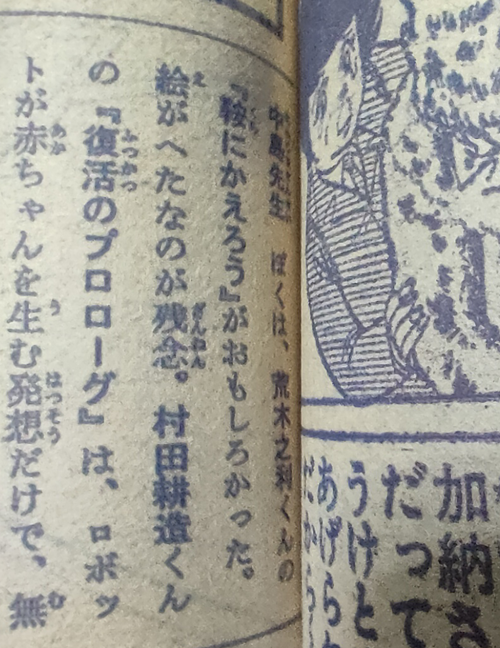 中島先生　ぼくは、荒木之利くんの
『鞍にかえろう』がおもしろかった。
絵がへたなのが残念。村田耕造くん
の『復活のプロローグ』は、ロボッ
トが赤ちゃんを生む発想だけで、無
加納さ
だって
うけと
あげらと
だから